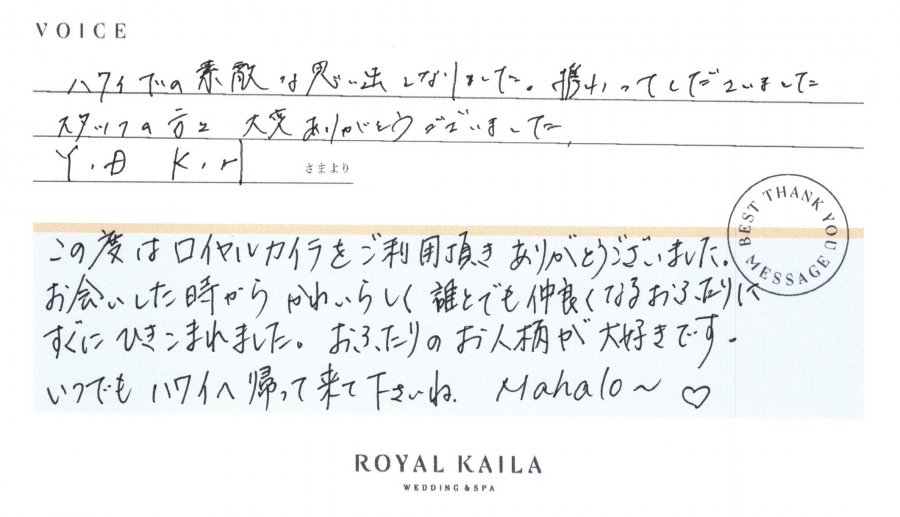 VOICE
ハワイでの素敵な思い出になりました。携わってくださいました
スタッフの方々 大変ありがとうございました
Y.
さまより
BEST THANK YOU MESSAGE
この度はロイヤルカイラをご利用頂きありがとうございました。
お会いした時からかわいらしく誰とでも仲良くなるおふたりに
すぐにひきこまれました。おふたりのお人柄が大好きです。
いつでもハワイへ帰って来て下さいね. Mahalo～ ♡
ROYAL KAILA
WEDDING & SPA